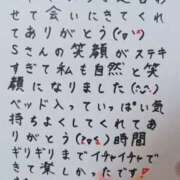 せて会いにきてくれ
てありがとう(^o^)
Sさんの笑顔がステキ
すぎて私も自然と笑
顔になりました(^^)
ベッド入っていっぱい気
持ちよくしてくれてあ
りがとう(^o^)時間
ギリギリまでイチャイチャで
きて楽しかったです❗